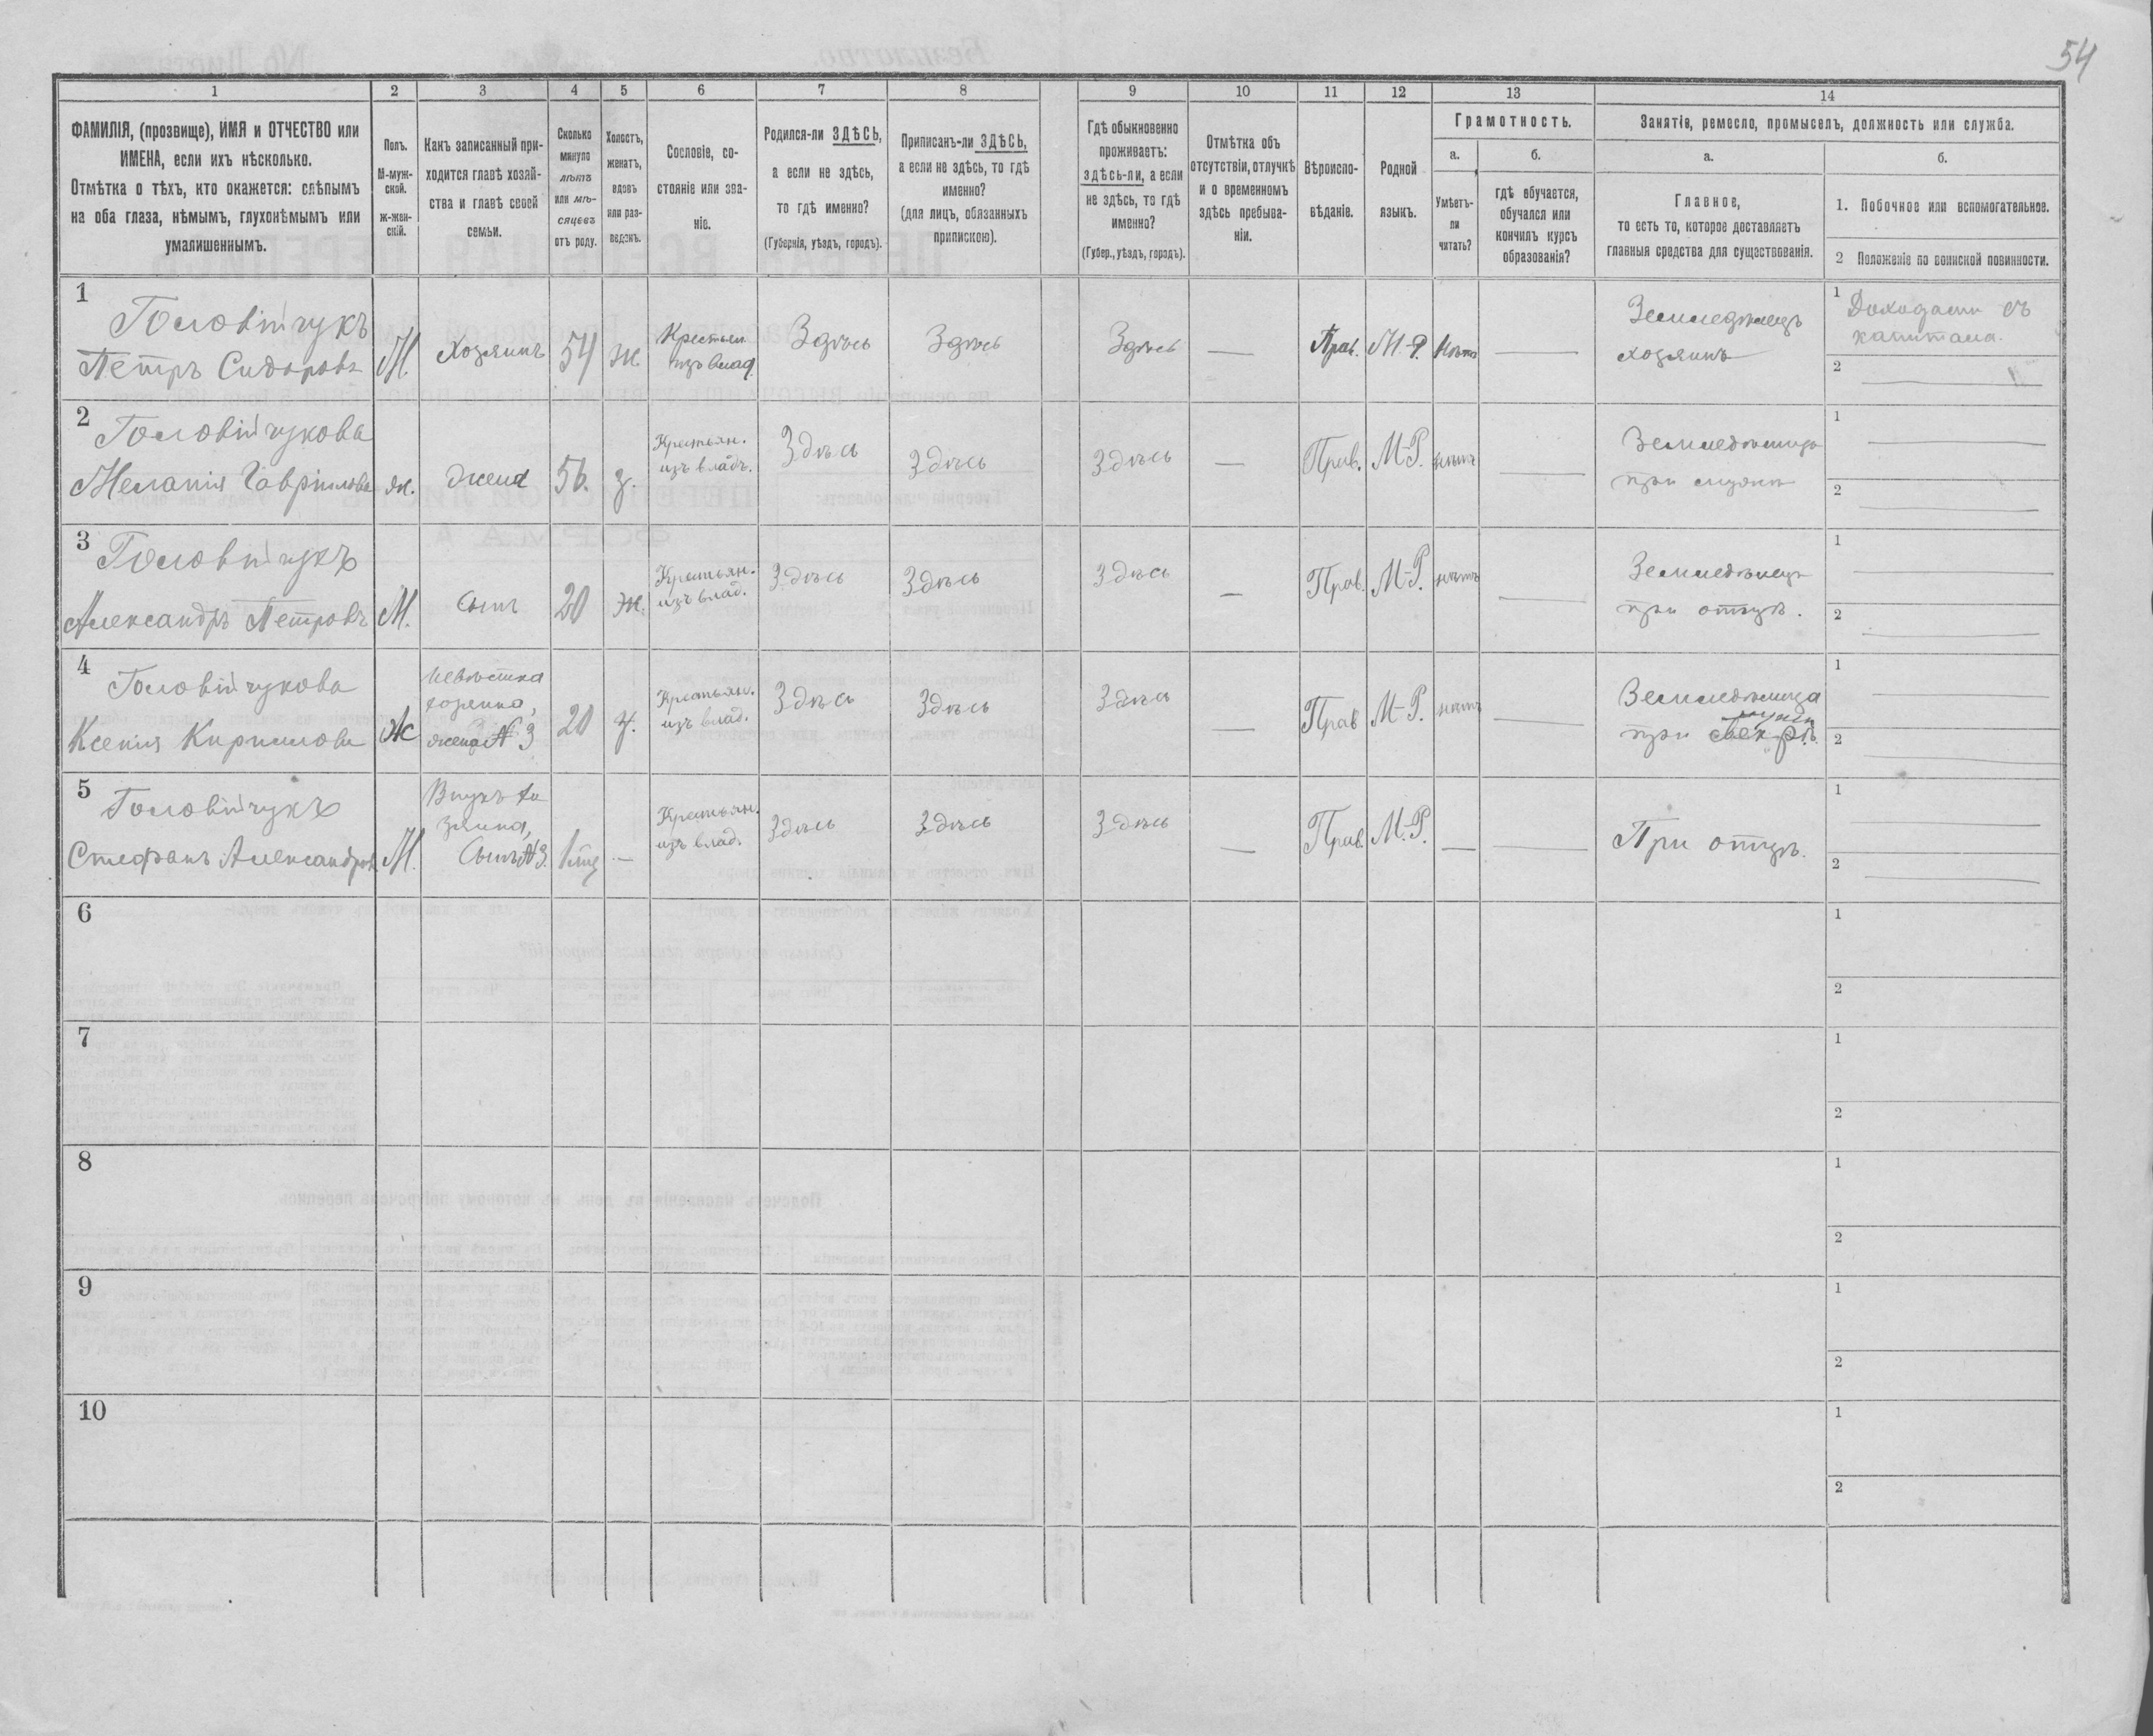 54
1 2 3 4 5 6 7 8 9 10 11 12 13 14
ФАМИЛІЯ, (прозвище), ИМЯ и ОТЧЕСТВО или
ИМЕНА, если ихъ нѣсколько.
Отмѣтка о тѣхъ, кто окажется: слѣпымъ
на оба глаза, нѣмымъ, глухонѣмымъ или
умалишеннымъ.
Полъ.
М-муж-
ской.
ж-жен-
скій.
Какъ записанный при-
ходится главѣ хозяй-
ства и главѣ своей
семьи.
Сколько
минуло
лѣтъ
или мѣ-
сяцевъ
отъ роду.
Холостъ,
женатъ,
вдовъ
или раз-
веденъ.
Сословіе, со-
стояніе или зва-
ніе.
Родился-ли ЗДѢСЬ,
а если не здѣсь,
то гдѣ именно?
(Губернія, уѣздъ, городъ).
Приписанъ-ли ЗДѢСЬ,
а если не здѣсь, то гдѣ
именно?
(для лицъ, обязанныхъ
припискою).
Гдѣ обыкновенно
проживаетъ:
здѣсь-ли, а если
не здѣсь, то гдѣ
именно?
(Губер., уѣздъ, городъ).
Отмѣтка объ
отсутствіи, отлучкѣ
и о временномъ
здѣсь пребыва-
ніи.
Вѣроиспо-
вѣданіе.
Родной
языкъ.
Грамотность.
а.
Умѣетъ-
ли
читать?
б.
гдѣ обучается,
обучался или
кончилъ курсъ
образованія?
Занятіе, ремесло, промыселъ, должность или служба.
а.
Главное,
то есть то, которое доставляетъ
главныя средства для существованія.
б.
1. Побочное или вспомогательное.
2 Положеніе по воинской повинности.
1
Головійчукъ
Петръ Сидоровъ
М.
Хозяинъ
54
Ж.
Крестьян
изъ влад.
Здѣсь
Здѣсь
Здѣсь
—
Прав.
М.-Р.
Нѣтъ
—
Земледѣлецъ
хозяинъ
1 Доходами съ
капитала.
2
2
Головійчукова
Меланія Гаврилова
ж.
Жена
56.
з.
Крестьян.
изъ влад.
Здѣсь
Здѣсь
Здѣсь
—
Прав.
М-Р.
нѣтъ
—
Земледѣлица
при мужѣ
1
2
3
Головійчукъ
Александръ Петровъ
М.
Сынъ
20
Ж.
Крестьян.
изъ влад.
Здѣсь
Здѣсь
Здѣсь
—
Прав.
М-Р.
нѣтъ
—
Земледѣлецъ
при отцѣ.
1
2
4
Головійчукова
Ксенія Кирилова
Ж
Невѣстка
хозяина,
жена № 3
20
з.
Крестьян.
изъ влад.
Здѣсь
Здѣсь
Здѣсь
—
Прав
М-Р.
нѣтъ
—
Земледѣлица
мужѣ
при
1
2
5
Головійчукъ
Стефанъ Александровъ
М.
Внукъ хо
зяина,
Сынъ № 3.
—
Крестьян.
изъ влад.
Здѣсь
Здѣсь
Здѣсь
—
Прав.
М.-Р.
—
—
При отцѣ.
1
2
6
1
2
7
1
2
8
1
2
9
1
2
10
1
2